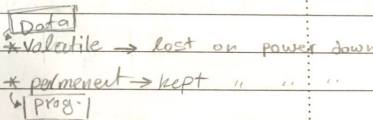 Data
* Volatile → lost on power down
* permenent → kept " " "
prog.